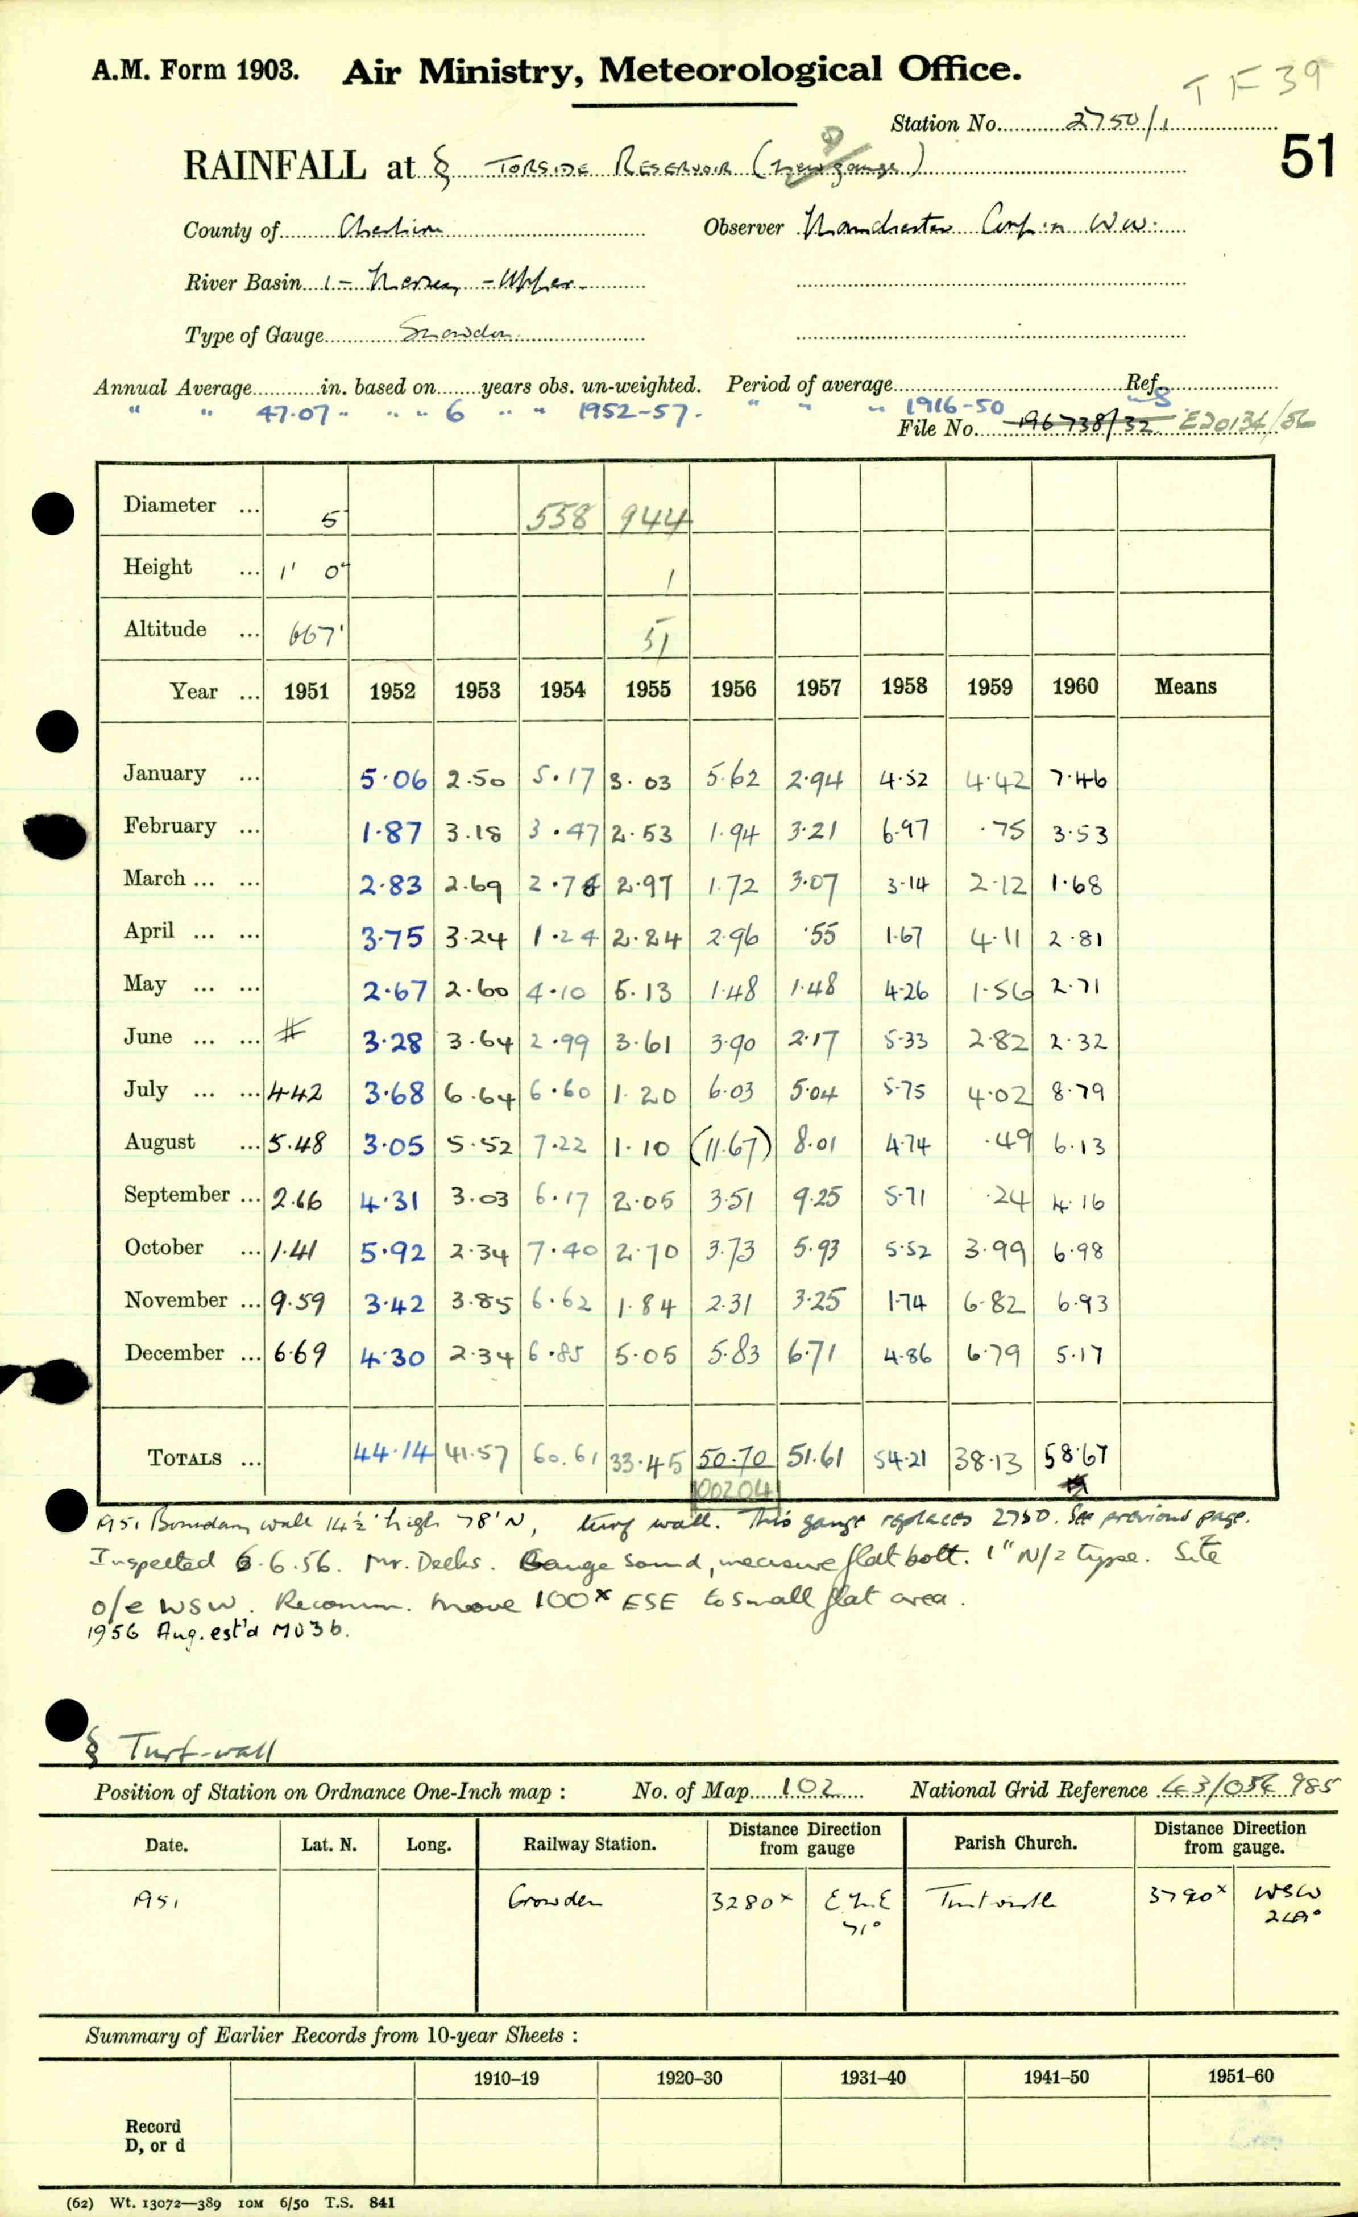 T F 39
A.M. Form 1903. Air Ministry, Meteorological Office.
Station No. 2750/1
51
RAINFALL at § TORSIDE RESERVOIR (New gauge)
County of Cheshire Observer Manchester Corp'n WW.
River Basin 1 - Mersey - Upper
Type of Gauge Snowdon
Annual Average in. based on years obs. un-weighted. Period of average Ref.
" " 47.07 " " " 6 " " 1952-57. " " " 1916-50
File No. 196738/32 E20134/56
Diameter ... 5 558 944
Height ... 1' 0" 1
Altitude ... 667' 51
Year ... 1951 1952 1953 1954 1955 1956 1957 1958 1959 1960 Means
January ... 5.06 2.50 5.17 3.03 5.62 2.94 4.52 4.42 7.46
February ... 1.87 3.18 3.47 2.53 1.94 3.21 6.97 .75 3.53
March ... ... 2.83 2.69 2.78 2.97 1.72 3.07 3.14 2.12 1.68
April ... ... 3.75 3.24 1.24 2.24 2.96 .55 1.67 4.11 2.81
May ... ... 2.67 2.60 4.10 5.13 1.48 1.48 4.26 1.56 2.71
June ... ... # 3.28 3.64 2.99 3.61 3.90 2.17 5.33 2.82 2.32
July ... ... 4.42 3.68 6.64 6.60 1.20 6.03 5.04 5.75 4.02 8.79
August ... 5.48 3.05 5.52 7.22 1.10 (11.67) 8.01 4.74 .49 6.13
September ... 2.66 4.31 3.03 6.17 2.05 3.51 9.25 5.71 .24 4.16
October ... 1.41 5.92 2.34 7.40 2.70 3.73 5.93 5.52 3.99 6.98
November ... 9.59 3.42 3.85 6.62 1.84 2.31 3.25 1.74 6.82 6.93
December ... 6.69 4.30 2.34 6.85 5.05 5.83 6.71 4.86 6.79 5.17
TOTALS ... 44.14 41.57 60.61 33.45 50.70 51.61 54.21 38.13 58.67
100204
1951 Boundary wall 14½' high 78' N, turf wall. This gauge replaces 2750. See previous page.
Inspected 6.6.56. Mr. Deeks. Gauge sound, measure flat bott. 1" N/2 type. Site
o/e WSW. Recomm. move 100x ESE to small flat area.
1956 Aug. est'd MO3b.
§ Turf-wall
Position of Station on Ordnance One-Inch map : No. of Map 102 National Grid Reference 43/056 985
Date. Lat. N. Long. Railway Station. Distance from Direction gauge Parish Church. Distance from Direction gauge.
1951 Crowden 3280x ENE Tintwistle 3790x WSW
71° 249°
Summary of Earlier Records from 10-year Sheets :
1910–19 1920–30 1931–40 1941–50 1951–60
Record
D, or d
(62) Wt. 13072—389 10M 6/50 T.S. 841